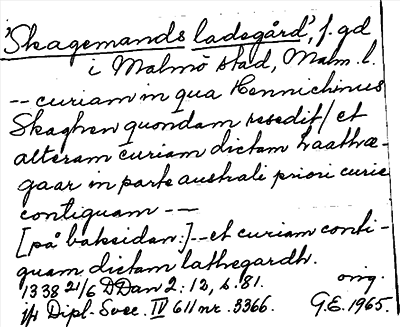 'Skagemands ladegård', f. gd
i Malmö stad, Malm. l.
-- curiam in qua Hennichinus
Skaghen quondam resedit / et
alteram curiam dictam Laathæ-
gaar in parte australi priori curie
contiguam --
[på baksidan:] -- et curiam conti-
guam dictam lathegardh.
1338 21/6 DDan 2:12, s. 81.
Dipl. Svec. IV 611 nr. 3366.
orig.
G.E. 1965.